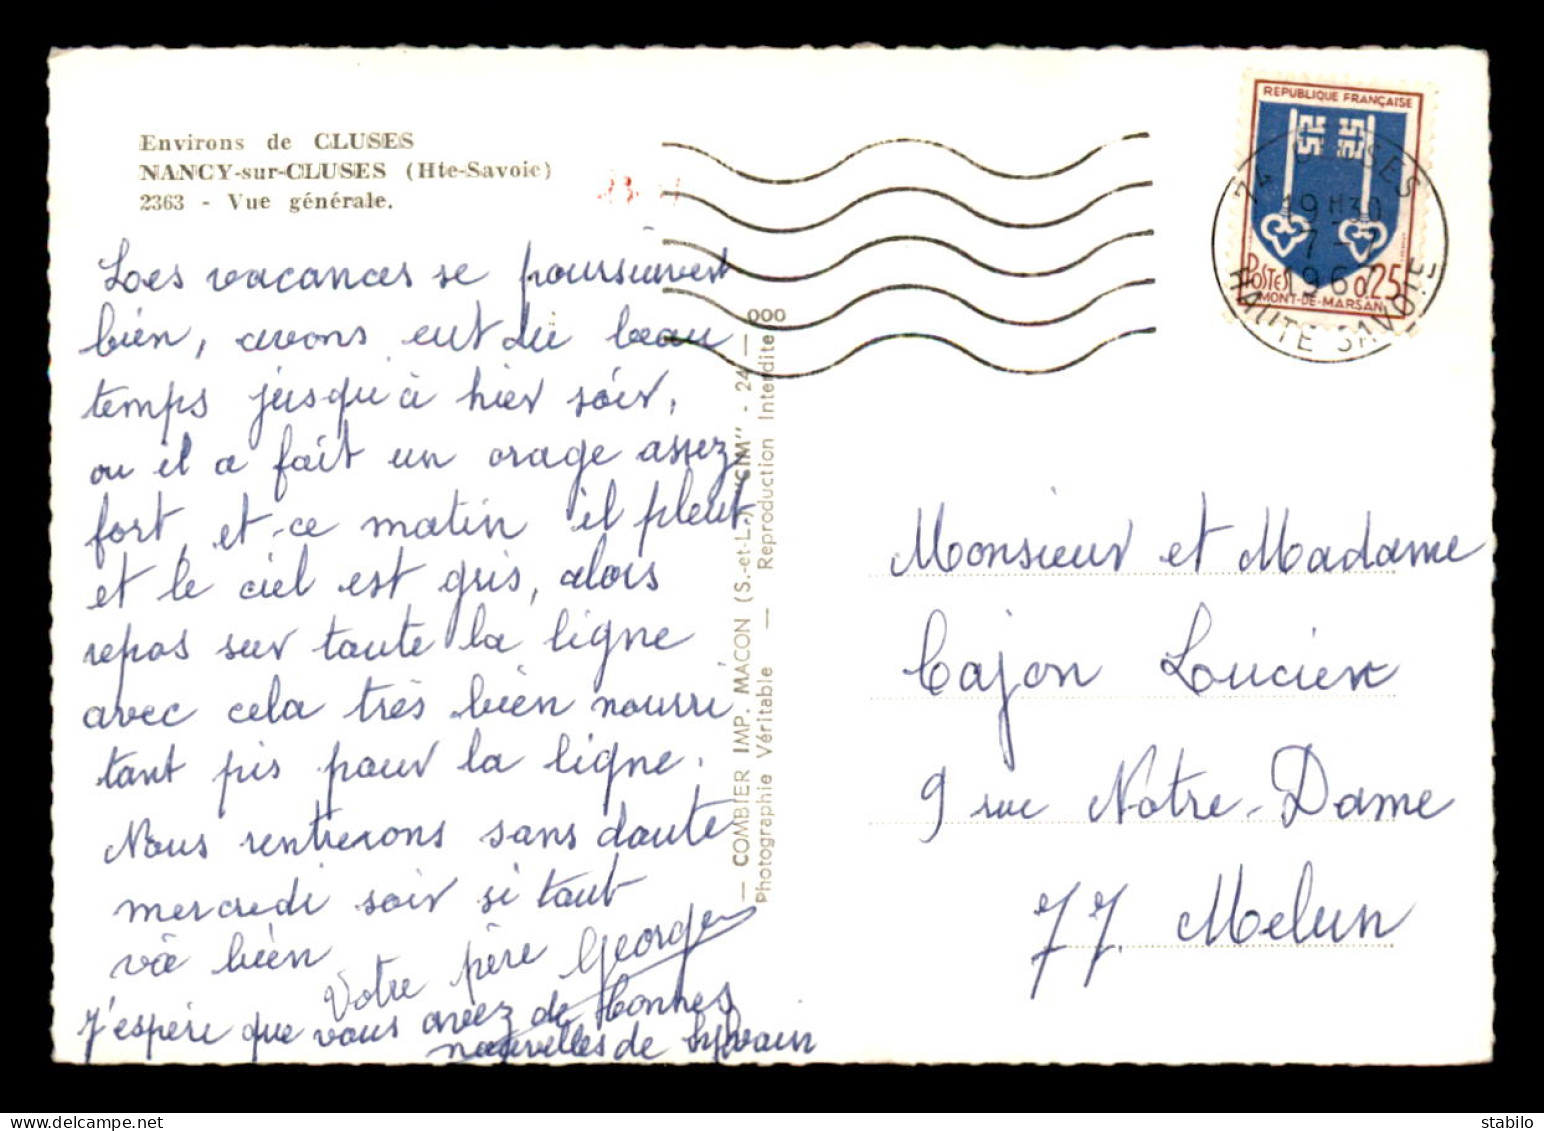 Environs de CLUSES
NANCY-sur-CLUSES (Hte-Savoie)
2363 - Vue générale.
Les vacances se poursuivent
bien, avons eut du beau
temps jusqu'à hier soir,
ou il a fait un orage assez
fort et ce matin il pleut
et le ciel est gris, alors
repos sur toute la ligne
avec cela très bien nourri
tant pis pour la ligne.
Nous rentrerons sans doute
mercredi soir si tout
và bien
Votre père Georges
J'espère que vous avez de bonnes
nouvelles de Sylvain
— COMBIER IMP. MACON (S.-et-L.) "CIM" - 24 —
Photographie Véritable — Reproduction Interdite
000
REPUBLIQUE FRANÇAISE
POSTES 0,25
MONT-DE-MARSAN
74 CLUSES
19 H30
7 -
196
HAUTE SAVOIE
Monsieur et Madame
Cajon Lucien
9 rue Notre-Dame
77. Melun
stabilo